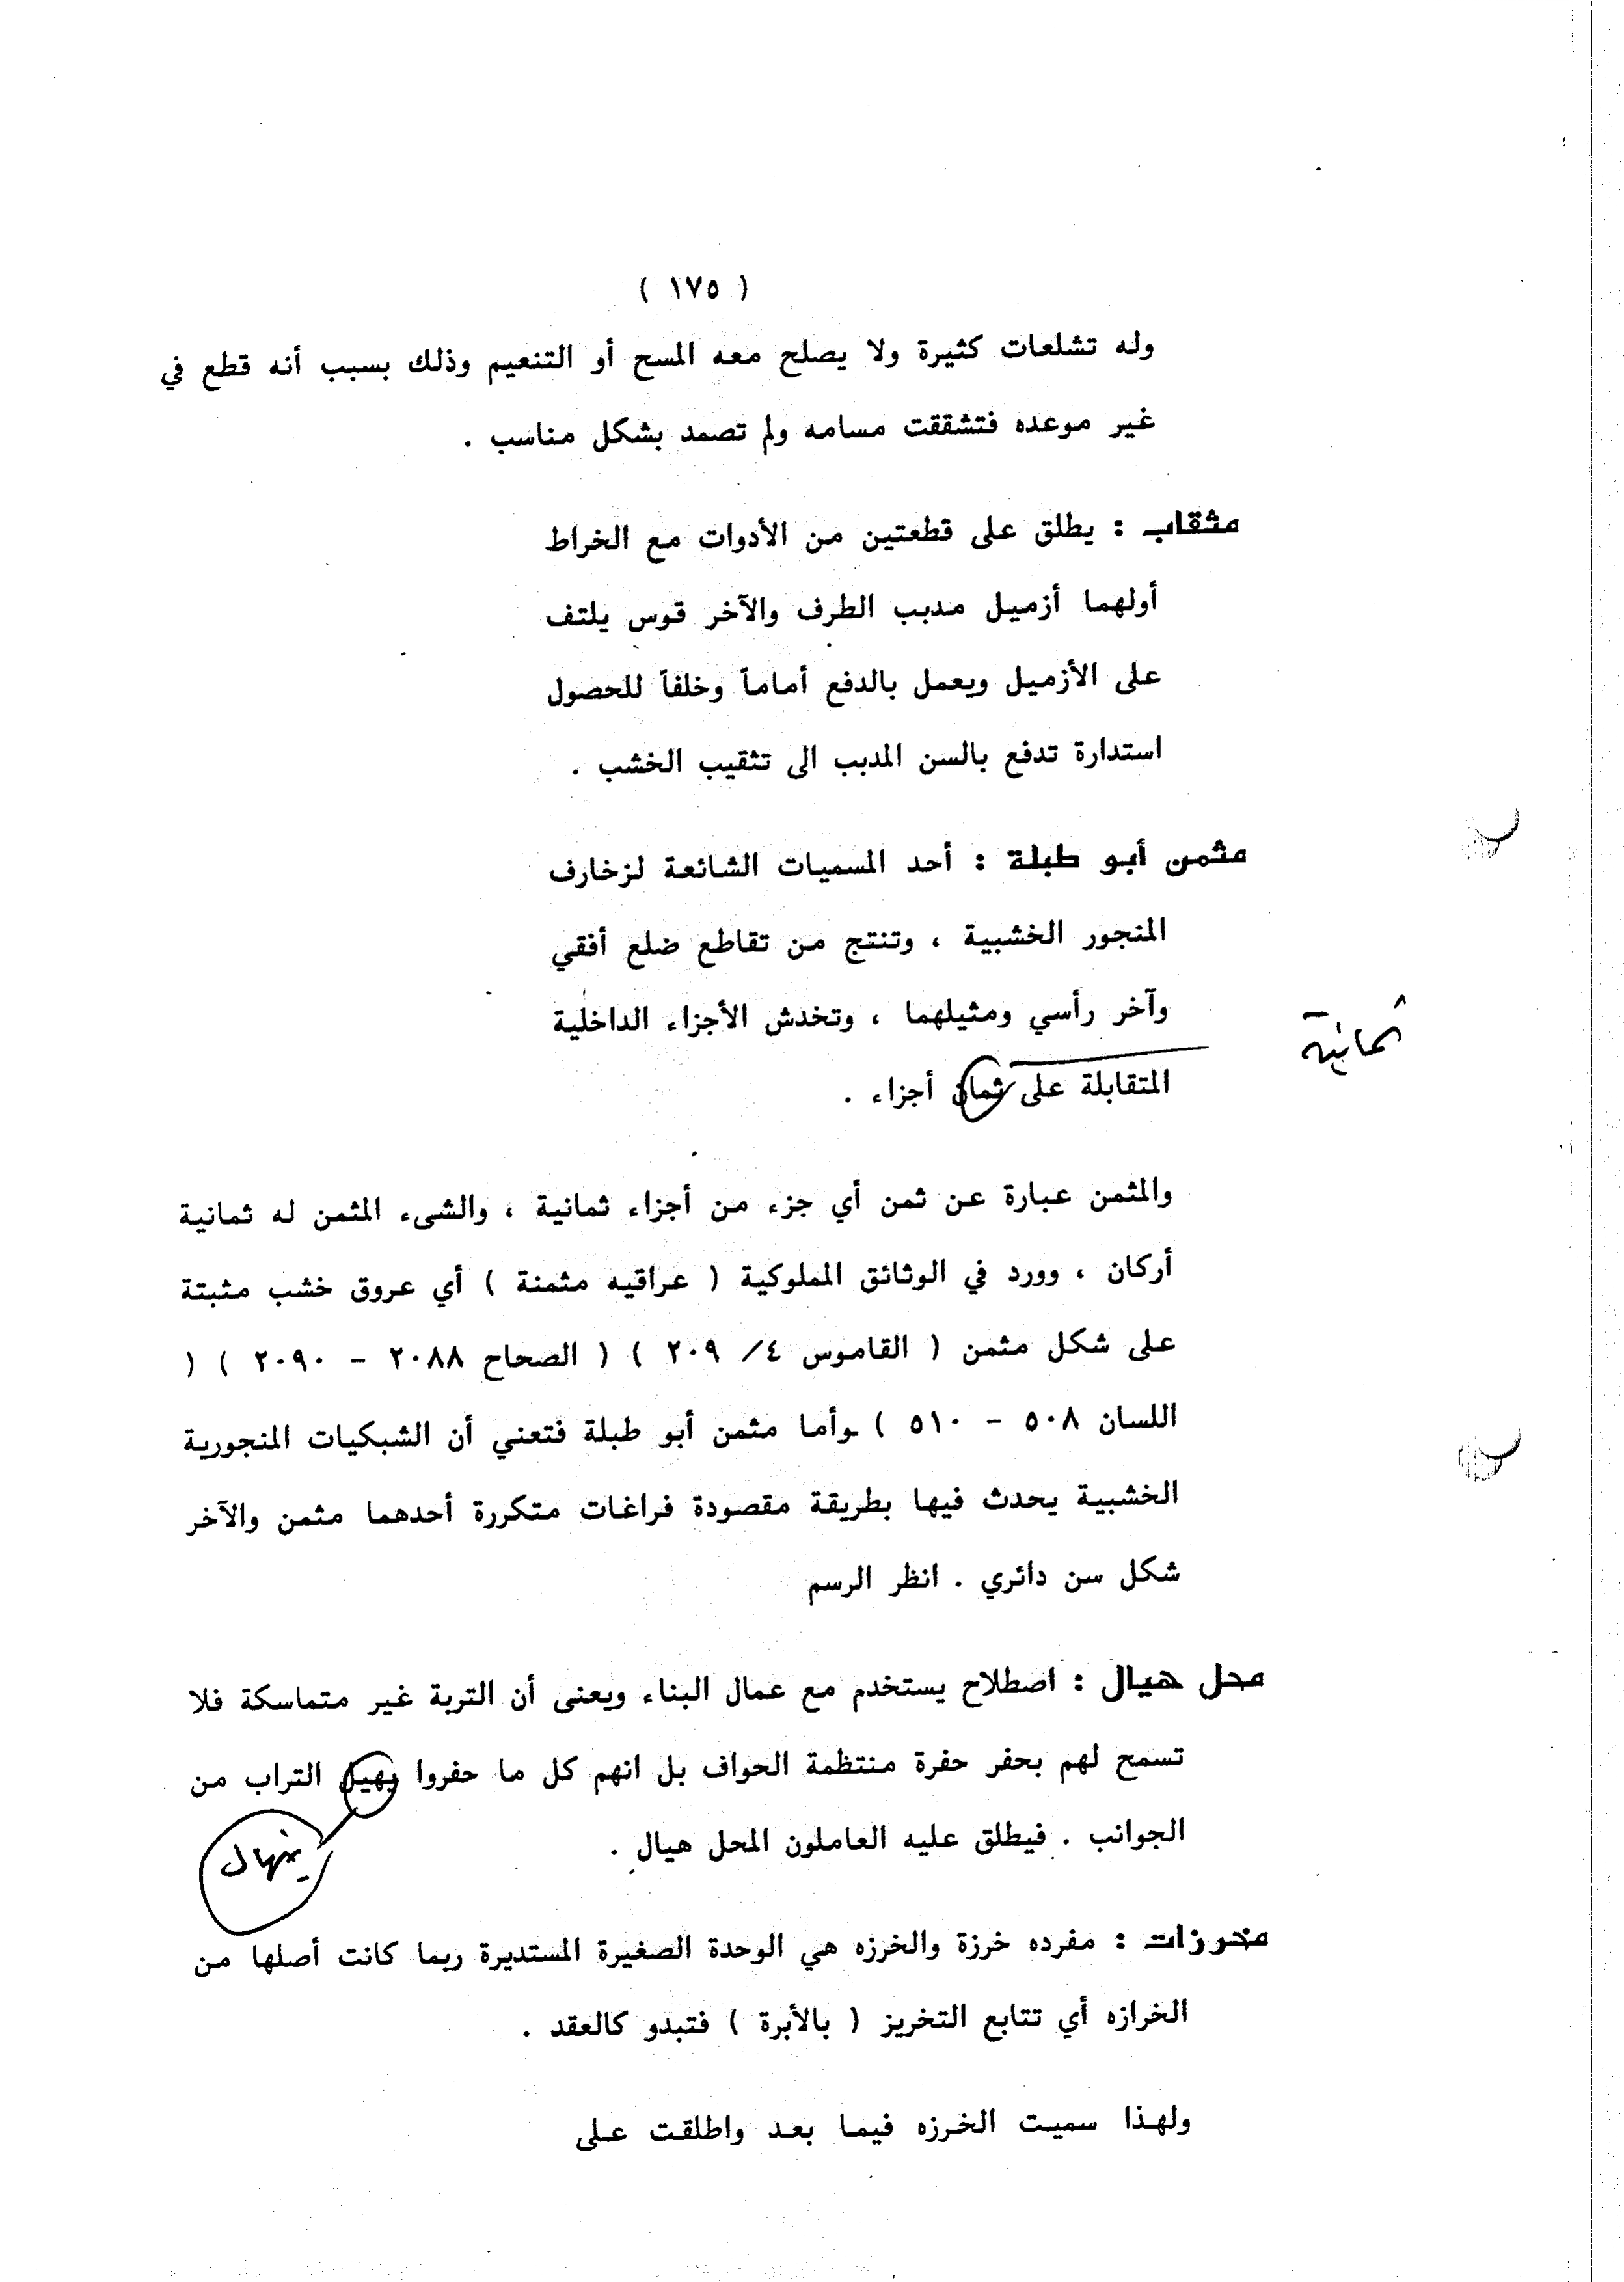 ( ١٧٥ )
وله تشلعات كثيرة ولا يصلح معه المسح أو التنعيم وذلك بسبب أنه قطع في
غير موعده فتشققت مسامه ولم تصمد بشكل مناسب .
مثقاب : يطلق على قطعتين من الأدوات مع الخراط
أولهما أزميل مدبب الطرف والآخر قوس يلتف
على الأزميل ويعمل بالدفع أماماً وخلفاً للحصول
استدارة تدفع بالسن المدبب الى تثقيب الخشب .
مثمن أبو طبلة : أحد المسميات الشائعة لزخارف
المنجور الخشبية ، وتنتج من تقاطع ضلع أفقي
وآخر رأسي ومثيلهما ، وتخدش الأجزاء الداخلية
ثمانية
المتقابلة على ثمان أجزاء .
والمثمن عبارة عن ثمن أي جزء من أجزاء ثمانية ، والشىء المثمن له ثمانية
أركان ، وورد في الوثائق المملوكية ( عراقيه مثمنة ) أي عروق خشب مثبتة
على شكل مثمن ( القاموس ٤/ ٢٠٩ ) ( الصحاح ٢٠٨٨ - ٢٠٩٠ ) (
اللسان ٥٠٨ - ٥١٠ ) وأما مثمن أبو طبلة فتعني أن الشبكيات المنجورية
الخشبية يحدث فيها بطريقة مقصودة فراغات متكررة أحدهما مثمن والآخر
شكل سن دائري . انظر الرسم
محل هيال : اصطلاح يستخدم مع عمال البناء ويعنى أن التربة غير متماسكة فلا
تسمح لهم بحفر حفرة منتظمة الحواف بل انهم كل ما حفروا يهيل التراب من
الجوانب . فيطلق عليه العاملون المحل هيال .
ينهال
مخرزات : مفرده خرزة والخرزه هي الوحدة الصغيرة المستديرة ربما كانت أصلها من
الخرازه أي تتابع التخريز ( بالأبرة ) فتبدو كالعقد .
ولهذا سميت الخرزه فيما بعد واطلقت على